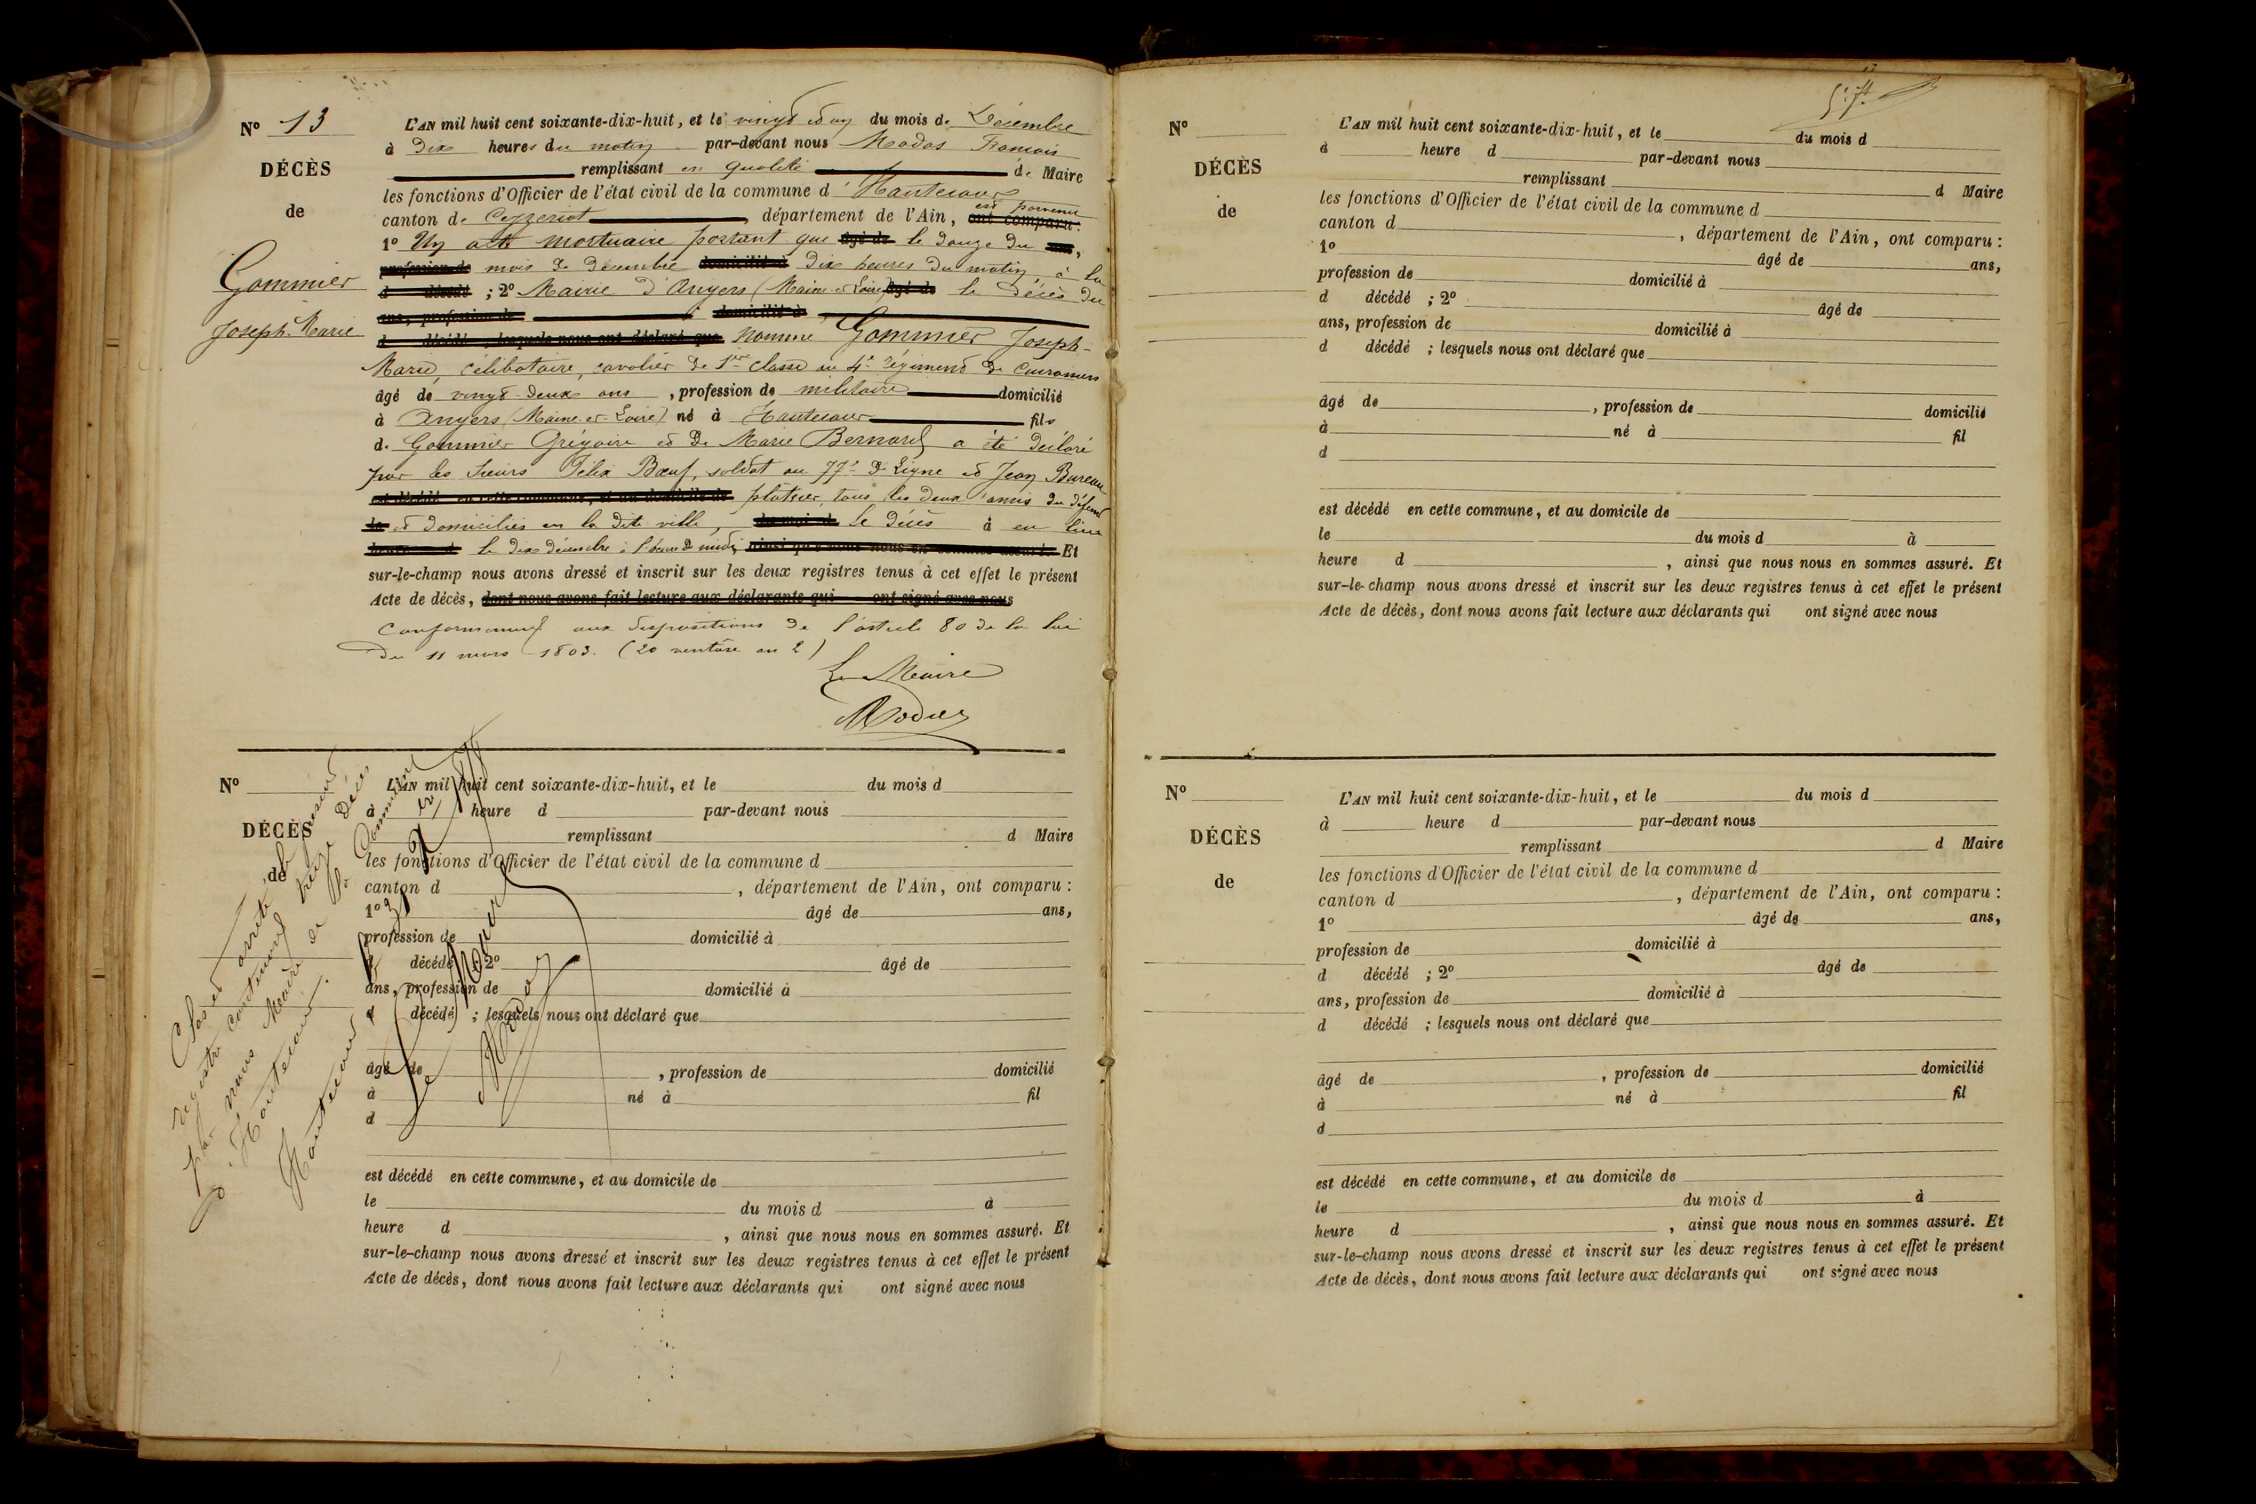 N° 13
DÉCÈS
de
Gommier
Joseph-Marie
L'AN mil huit cent soixante-dix-huit, et le vingt et un du mois de Décembre
à dix heures du matin par-devant nous Modas François
remplissant en qualité de Maire
les fonctions d'Officier de l'état civil de la commune d'Hautecour
canton de Ceyzeriat département de l'Ain, ont comparu : est parvenu
1° Un acte mortuaire portant que âgé de le douze du ans,
profession de mois de décembre domicilié à dix heures du matin, à la
d décédé ; 2° Mairie d'Angers (Maine-et-Loire) âgé de le décès du
ans, profession de domicilié à
d décédé ; lesquels nous ont déclaré que nommé Gommier Joseph-
Marie, célibataire, cavalier de 1re classe au 4e régiment de Cuirassiers
âgé de vingt-deux ans, profession de militaire domicilié
à Angers (Maine-et-Loire) né à Hautecour fils
de Gommier Grégoire et de Marie Bernard a été déclaré
par les sieurs Félix Bœuf, soldat au 77e de Ligne et Jean Bureau
est décédé en cette commune, et au domicile de plâtrier, tous les deux amis du défunt
le et domiciliés en la dite ville, du mois d Le décès à eu lieu
heure d le dix décembre à l'heure de midi, ainsi que nous nous en sommes assuré. Et
sur-le-champ nous avons dressé et inscrit sur les deux registres tenus à cet effet le présent
Acte de décès, dont nous avons fait lecture aux déclarants qui ont signé avec nous
Conformément aux dispositions de l'article 80 de la loi
du 11 mars 1803. (20 ventôse an 2)
Le Maire
N°
DÉCÈS
de
L'AN mil huit cent soixante-dix-huit, et le du mois d
à heure d par-devant nous
remplissant d Maire
les fonctions d'Officier de l'état civil de la commune d
canton d , département de l'Ain, ont comparu :
1° âgé de ans,
profession de domicilié à
d décédé ; 2° âgé de
ans, profession de domicilié à
d décédé ; lesquels nous ont déclaré que
âgé de , profession de domicilié
à né à fil
d
est décédé en cette commune, et au domicile de
le du mois d à
heure d , ainsi que nous nous en sommes assuré. Et
sur-le-champ nous avons dressé et inscrit sur les deux registres tenus à cet effet le présent
Acte de décès, dont nous avons fait lecture aux déclarants qui ont signé avec nous
Clos et arrêté le présent
registre contenant treize décès
par nous Maire de la Commune
d'Hautecour.
Hautecour le 31
Le Maire
N°
DÉCÈS
de
L'AN mil huit cent soixante-dix-huit, et le du mois d
à heure d par-devant nous
remplissant d Maire
les fonctions d'Officier de l'état civil de la commune d
canton d , département de l'Ain, ont comparu :
1° âgé de ans,
profession de domicilié à
d décédé ; 2° âgé de
ans, profession de domicilié à
d décédé ; lesquels nous ont déclaré que
âgé de , profession de domicilié
à né à fil
d
est décédé en cette commune, et au domicile de
le du mois d à
heure d , ainsi que nous nous en sommes assuré. Et
sur-le-champ nous avons dressé et inscrit sur les deux registres tenus à cet effet le présent
Acte de décès, dont nous avons fait lecture aux déclarants qui ont signé avec nous
N°
DÉCÈS
de
L'AN mil huit cent soixante-dix-huit, et le du mois d
à heure d par-devant nous
remplissant d Maire
les fonctions d'Officier de l'état civil de la commune d
canton d , département de l'Ain, ont comparu :
1° âgé de ans,
profession de domicilié à
d décédé ; 2° âgé de
ans, profession de domicilié à
d décédé ; lesquels nous ont déclaré que
âgé de , profession de domicilié
à né à fil
d
est décédé en cette commune, et au domicile de
le du mois d à
heure d , ainsi que nous nous en sommes assuré. Et
sur-le-champ nous avons dressé et inscrit sur les deux registres tenus à cet effet le présent
Acte de décès, dont nous avons fait lecture aux déclarants qui ont signé avec nous